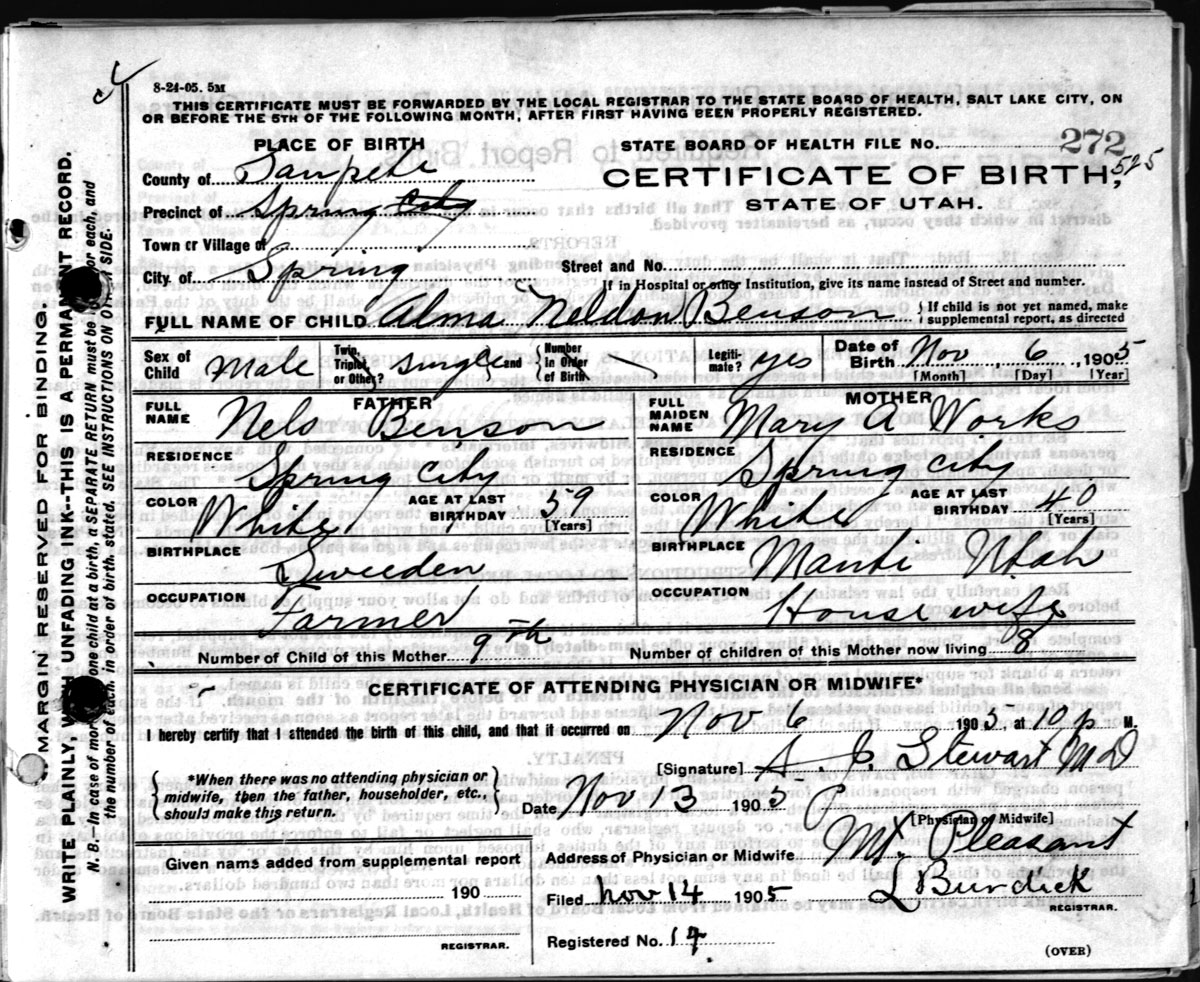 8-24-05. 5M
THIS CERTIFICATE MUST BE FORWARDED BY THE LOCAL REGISTRAR TO THE STATE BOARD OF HEALTH, SALT LAKE CITY, ON
OR BEFORE THE 5TH OF THE FOLLOWING MONTH, AFTER FIRST HAVING BEEN PROPERLY REGISTERED.
PLACE OF BIRTH
County of Sanpete
Precinct of Spring City
Town or Village of
City of Spring
STATE BOARD OF HEALTH FILE NO. 272
525
CERTIFICATE OF BIRTH,
STATE OF UTAH.
Street and No.
If in Hospital or other Institution, give its name instead of Street and number.
FULL NAME OF CHILD Alma Neldon Benson } If child is not yet named, make supplemental report, as directed
Sex of Child Male Twin, Triplet or Other? Single and { Number in Order of Birth Legitimate? yes Date of Birth Nov 6, 1905
[Month] [Day] [Year]
FATHER
FULL NAME Nels Benson
RESIDENCE Spring City
COLOR White AGE AT LAST BIRTHDAY 59 [Years]
BIRTHPLACE Sweeden
OCCUPATION Farmer
MOTHER
FULL MAIDEN NAME Mary A Works
RESIDENCE Spring City
COLOR White AGE AT LAST BIRTHDAY 40 [Years]
BIRTHPLACE Manti Utah
OCCUPATION Housewife
Number of Child of this Mother 9th Number of children of this Mother now living 8
CERTIFICATE OF ATTENDING PHYSICIAN OR MIDWIFE*
I hereby certify that I attended the birth of this child, and that it occurred on Nov 6 1905, at 10 p M.
*When there was no attending physician or
midwife, then the father, householder, etc.,
should make this return.
[Signature] A. J. Stewart MD
Date Nov 13 1905
[Physician or Midwife]
Given name added from supplemental report
190
REGISTRAR.
Address of Physician or Midwife Mt. Pleasant
Filed Nov 14 1905 L Burdick
REGISTRAR.
Registered No. 14
(OVER)
MARGIN RESERVED FOR BINDING.
WRITE PLAINLY, WITH UNFADING INK--THIS IS A PERMANENT RECORD.
N. B.--In case of more one child at a birth, a SEPARATE RETURN must be for each, and
the number of each, in order of birth, stated. SEE INSTRUCTIONS ON SIDE.